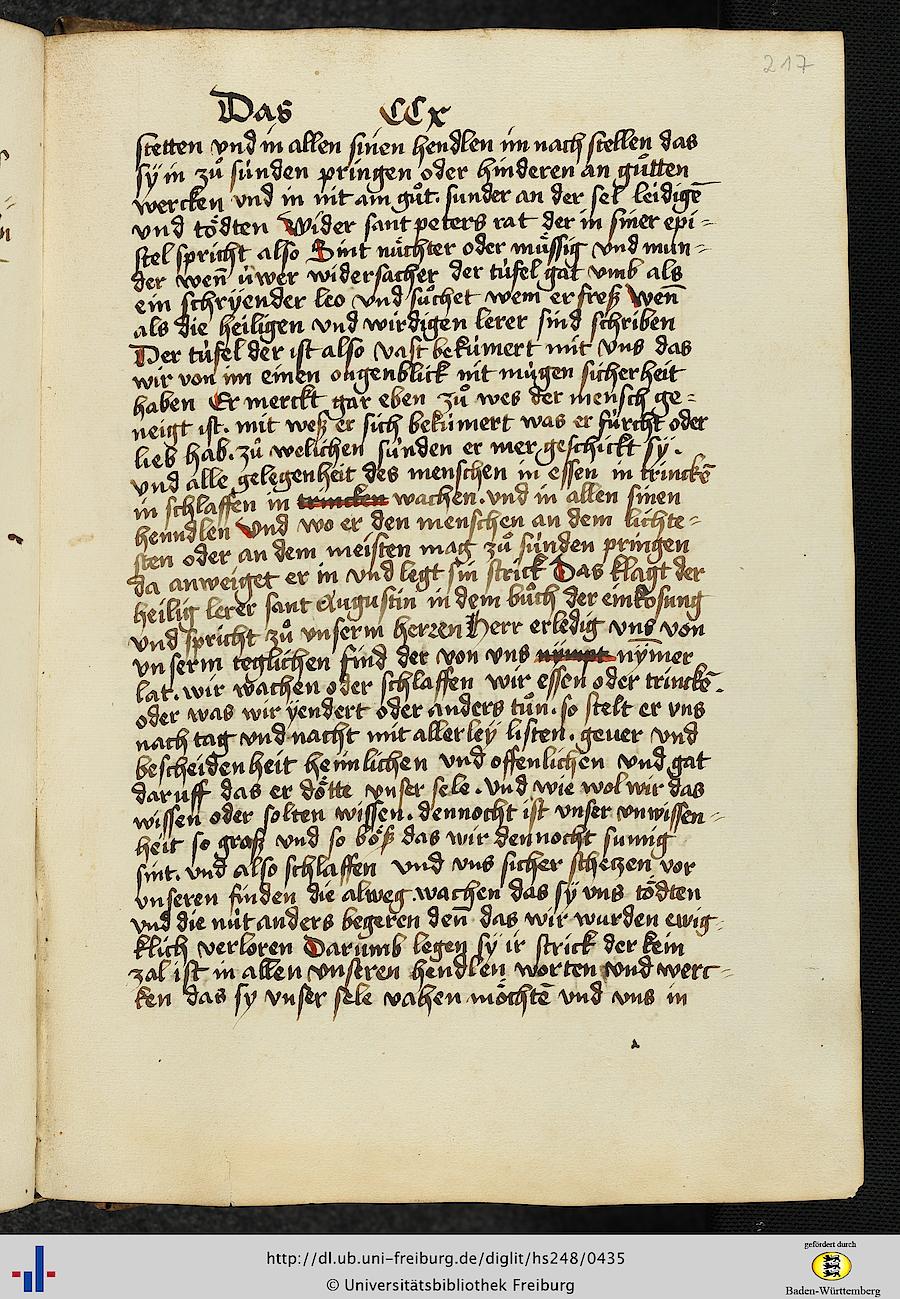 217
Das CCx
stetten vnd in allen sinen hendlen im nach stellen das
sÿ in zů sünden pringen oder hinderen an gůtten
wercken vnd in nit am gůt. sunder an der sel leidigē
vnd tödten Wider sant peters rat der in siner epi=
stel spricht also Sint nächter oder mässig vnd mun=
der wen̄ üwer widersacher der tüfel gat vmb als
ein schrÿender leo vnd sůchet wem er fresß Wen̄
als die heiligen vnd wirdigen lerer sind schriben
Der tüfel der ist also vast bekümert mit vns das
wir von im einen ougenblick nit mügen sicherheit
haben Er merckt gar eben zů wes der mensch ge=
neigt ist. mit weß er sich bekümert was er fürcht oder
lieb hab. zů welichen sünden er mer geschickt sÿ.
vnd alle gelegenheit des menschen in essen in trinckē
in schlaffen in trincken wachen. vnd in allen sinen
henndlen Vnd wo er den menschen an dem lichte=
sten oder an dem meisten mag zů sünden pringen
da anweiget er in vnd legt sin strick Das klagt der
heilig lerer sant Augustin in dem bůch der einkosung
vnd spricht zů vnserm herren Herr erledig vns von
vnserm teglichen find der von vns nÿmer
lat. wir wachen oder schlaffen wir essen oder trinckē.
oder was wir ÿendert oder anders tůn. so stelt er vns
nach tag vnd nacht mit allerleÿ listen. geuer vnd
bescheidenheit heimlichen vnd offenlichen vnd gat
daruff das er dötte vnser sele. Vnd wie wol wir das
wissen oder solten wissen. dennocht ist vnser vnwissen=
heit so groß vnd so böß das wir dennocht sumig
sint. vnd also schlaffen vnd vns sicher schetzen vor
vnseren finden die alweg wachen das sÿ vns tödten
vnd die nüt anders begeren den̄ das wir wurden ewig=
klich verloren Darumb legen sÿ ir strick der kein
zal ist in allen vnseren hendlen worten vnd werc=
ken das sy vnser sele vahen möchtē vnd vns in
http://dl.ub.uni-freiburg.de/diglit/hs248/0435
© Universitätsbibliothek Freiburg
gefördert durch
Baden-Württemberg